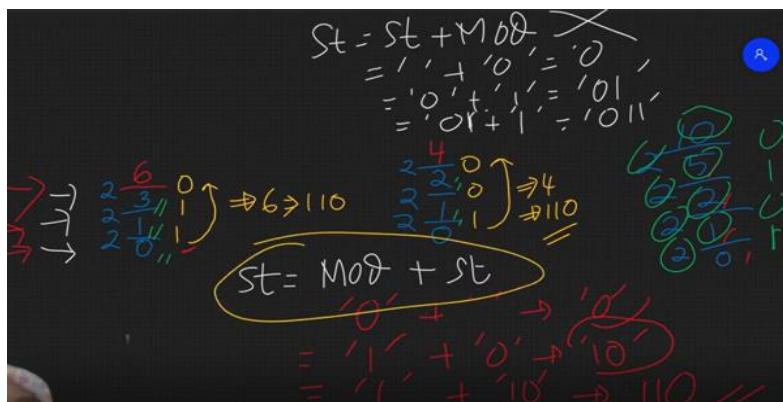 St = St + MOD
= '' + '0' = '0'
= '0' + '1' = '01'
= '01' + '1' = '011'
2 6 0
2 3 1
2 1 1
0
⇒ 6 → 110
2 4 0
2 2 0
2 1 1
0
⇒ 4
⇒ 110
2 10 0
2 5 1
2 2
2 1
0
St = MOD + St
'0' + '' → '0'
= '1' + '0' → '10'
= '1' + '10' → 110